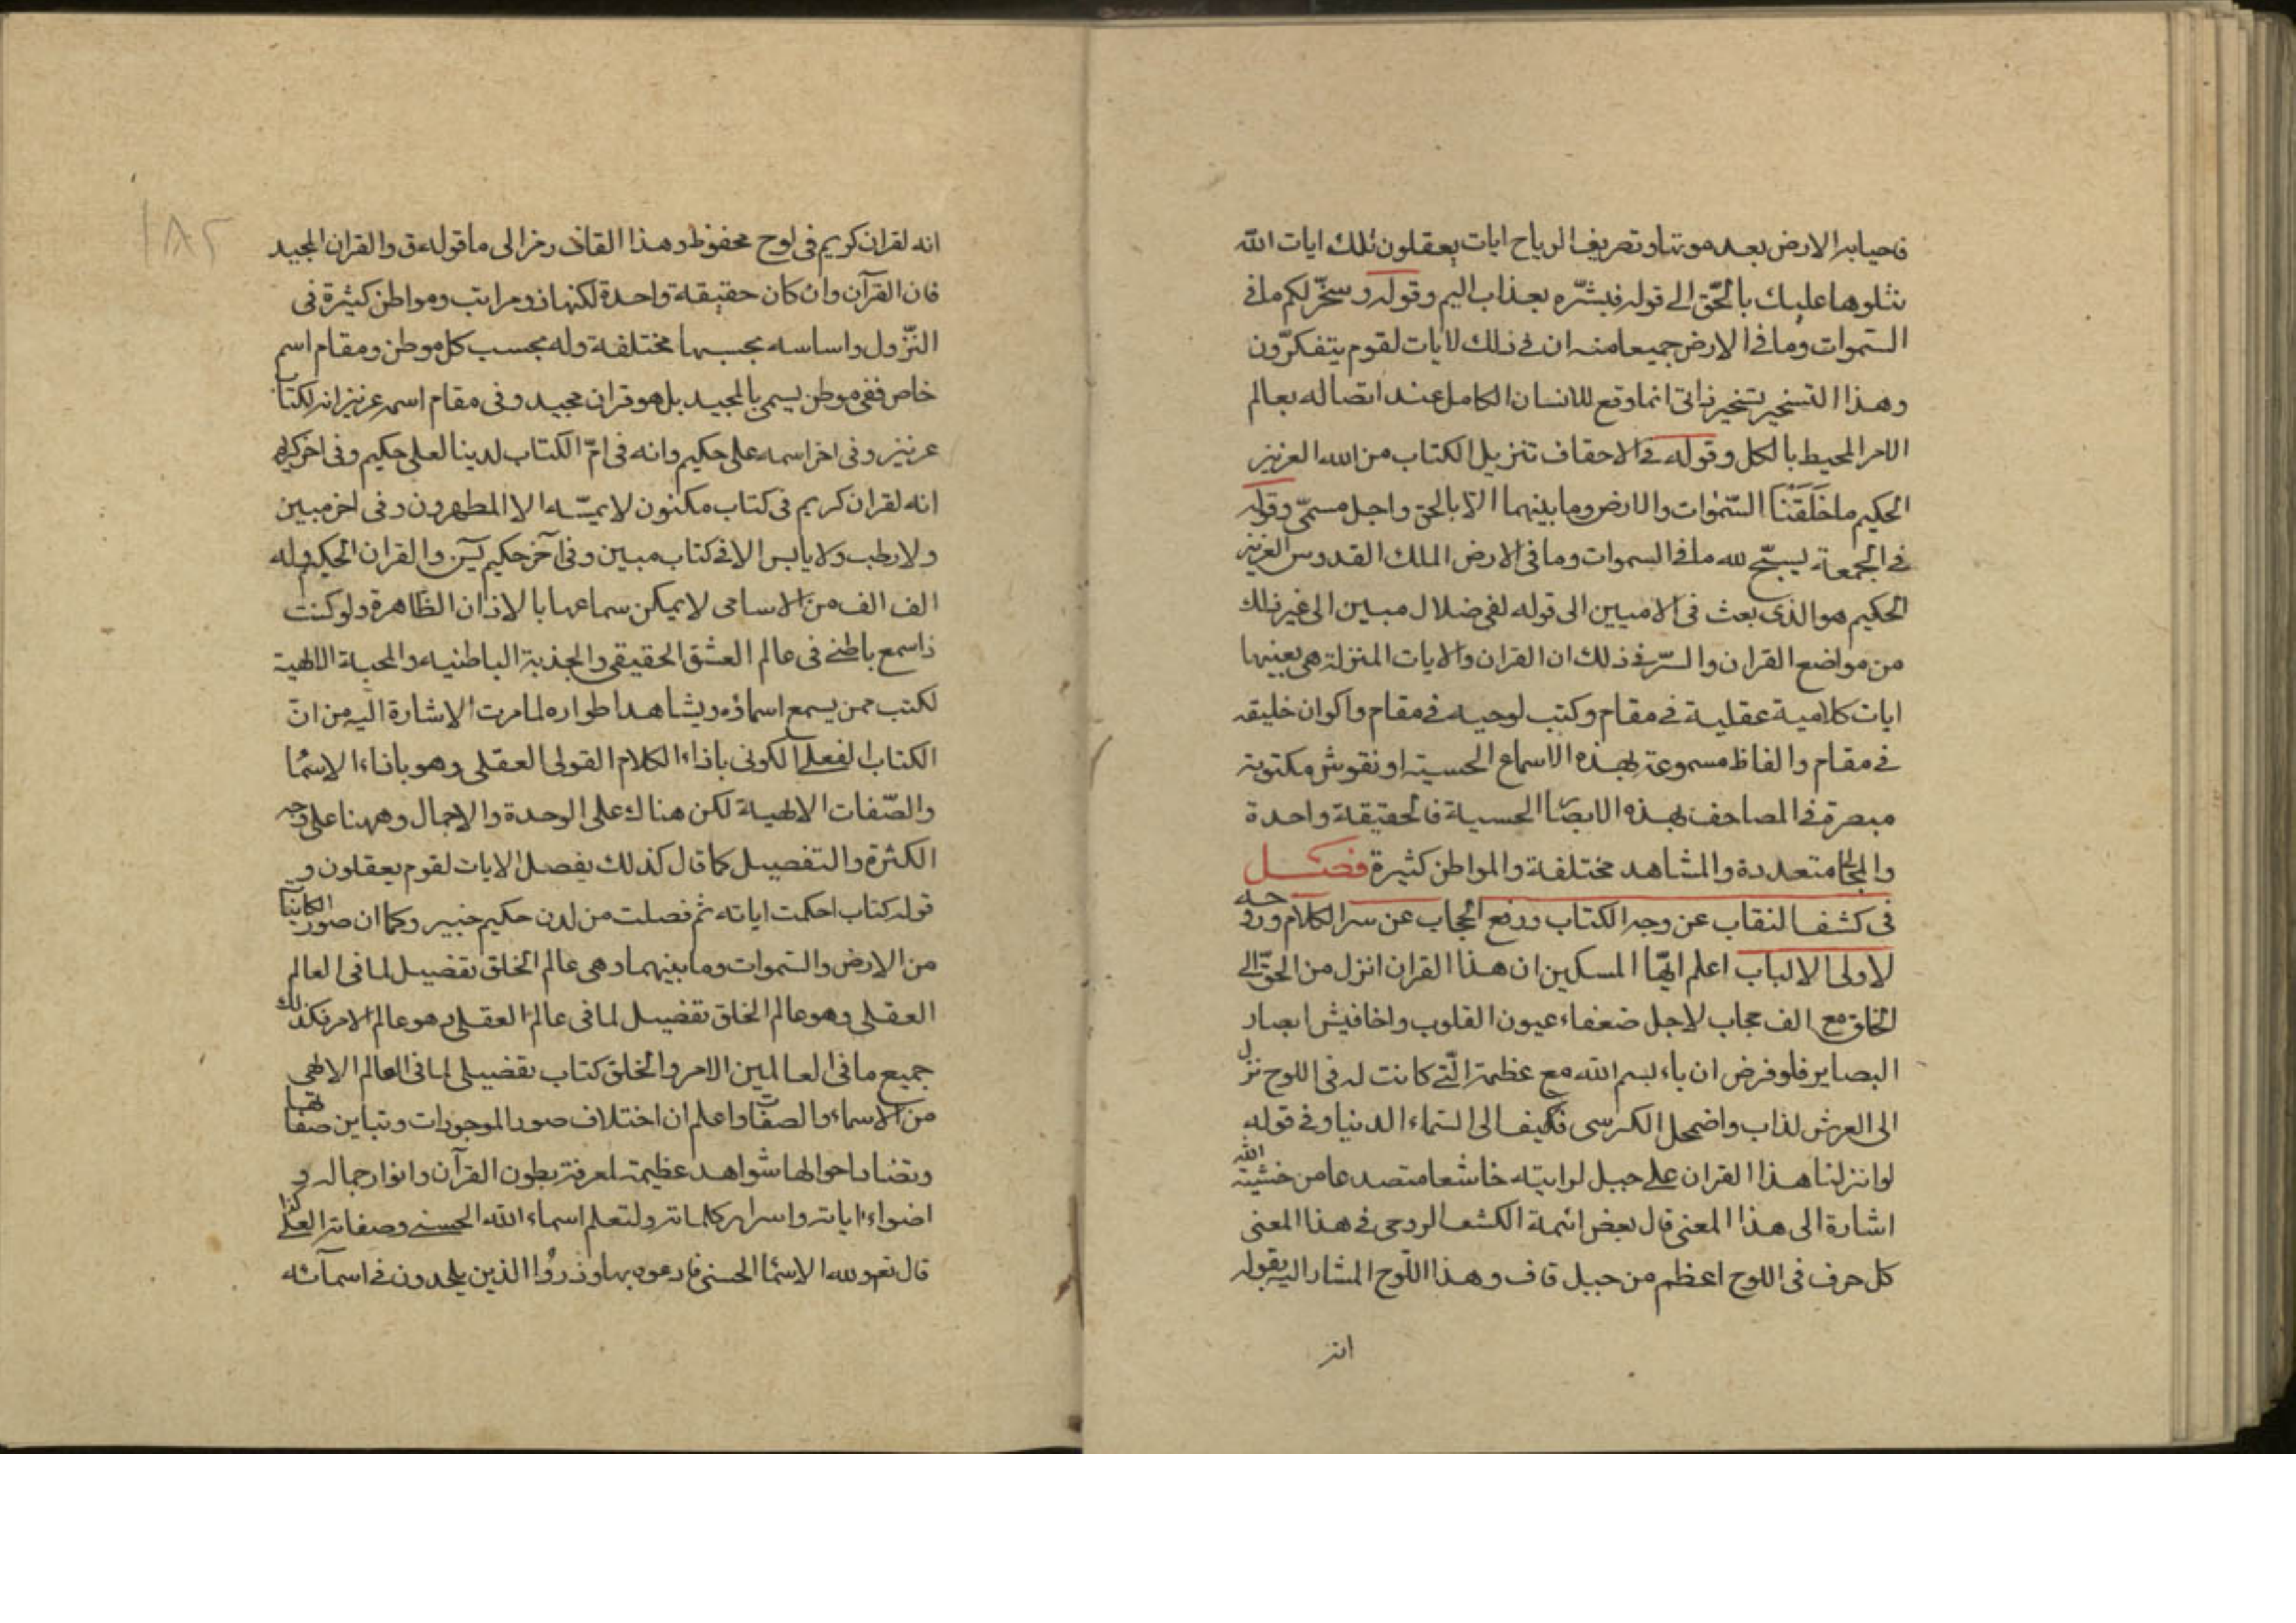 فاحيا به الارض بعد موتها وتصريف الرياح ايات يعقلون تلك ايات الله
نتلوها عليك بالحّق الى قوله فبشّره بعذاب اليم وقوله وسخّر لكم ما فى
السّموات وما فى الارض جميعا منه ان فى ذلك لايات لقوم يتفكّرون
وهذا التسخير تسخير ذاتى انما وقع للانسان الكامل عند اتصاله بعالم
الامر المحيط بالكل وقوله فى الاحقاف تنزيل الكتاب من الله العزيز
الحكيم ما خَلَقْنَا السّموات والارض وما بينهما الّا بالحق واجل مسمّى وقوله
فى الجمعة يسبّح لله ما فى السموات وما فى الارض الملك القدوس العزيز
الحكيم هو الذى بعث فى الاميين الى قوله لفى ضلال مبين الى غير ذلك
من مواضع القران والسّر فى ذلك ان القران والايات المنزلة هى بعينها
ايات كلامية عقلية فى مقام وكتب لوحيه فى مقام واكوان خليقه
فى مقام والفاظ مسموعة بهذه الاسماع الحسية او نقوش مكتوبة
مبصرة فى المصاحف بهذه الابصار الحسية فالحقيقة واحدة
والمجالى متعددة والمشاهد مختلفة والمواطن كثيرة فصل
فى كشف النقاب عن وجه الكتاب ورفع الحجاب عن سر الكلام وروحه
لاولى الالباب اعلم ايّها المسكين ان هذا القران انزل من الحقّ الى
الخلق مع الف حجاب لاجل ضعفاء عيون القلوب واخافيش ابصار
البصاير فلو فرض ان باء بسم الله مع عظمة الّتى كانت له فى اللوح نزل
الى العرش لذاب واضمحل الكرسى فكيف الى السّماء الدنيا وفى قوله
لو انزلنا هذا القران على جبل لرايته خاشعا متصدعا من خشية الله
اشارة الى هذا المعنى قال بعض ائمة الكشف الروحى فى هذا المعنى
كل حرف فى اللوح اعظم من جبل قاف وهذا اللّوح المشار اليه بقوله
انه
١٨٢
انه لقران كريم فى لوح محفوظ وهذا القاف رمز الى ما قوله ق والقران المجيد
فان القرآن وان كان حقيقة واحدة لكنها ذو مراتب ومواطن كثيرة فى
النّزول واساسه بحسبها مختلفة وله بحسب كل موطن ومقام اسم
خاص ففى موطن يسمى بالمجيد بل هو قران مجيد وفى مقام اسمه عزيز انه لكتاب
عزيز وفى اخر اسمه على حكيم وانه فى امّ الكتاب لدينا لعلى حكيم وفى اخر كريم
انه لقران كريم فى كتاب مكنون لا يمسّه الا المطهرون وفى اخر مبين
ولا رطب ولا يابس الا فى كتاب مبين وفى آخر حكيم يس والقران الحكيم وله
الف الف من الاسامى لا يمكن سماعها بالاذان الظاهرة ولو كنت
ذا سمع باطنى فى عالم العشق الحقيقى والجذبة الباطنيه والمحبة الالهية
لكنت ممن يسمع اسماؤه ويشاهد اطواره لما مرت الاشارة اليه من انّ
الكتاب الفعلى الكونى باذاء الكلام القولى العقلى وهو باذاء الاسماء
والصّفات الالهية لكن هناك على الوحدة والاجمال وههنا على وجه
الكثرة والتفصيل كما قال كذلك يفصل الايات لقوم يعقلون و
قوله كتاب احكمت اياته ثم فصلت من لدن حكيم خبير وكما ان صور الكاينات
من الارض والسّموات وما بينهما وهى عالم الخلق تفضيل لما فى العالم
العقلى وهو عالم الخلق تفضيل لما فى عالم العقلى وهو عالم الامر فكذلك
جميع ما فى العالمين الامر والخلق كتاب تفضيلى لما فى العالم الالهى
من الاسماء والصفات واعلم ان اختلاف صور الموجودات وتباين صفاتها
وتضاد احوالها شواهد عظيمة لمعرفة بطون القرآن وانوار جماله و
اضواء اياته واسرار كلماته ولتعلم اسماء الله الحسنى وصفاته العليا
قال تعم ولله الاسماء الحسنى فادعوه بها وذرُوا الذين يلحدون فى اسمآئه